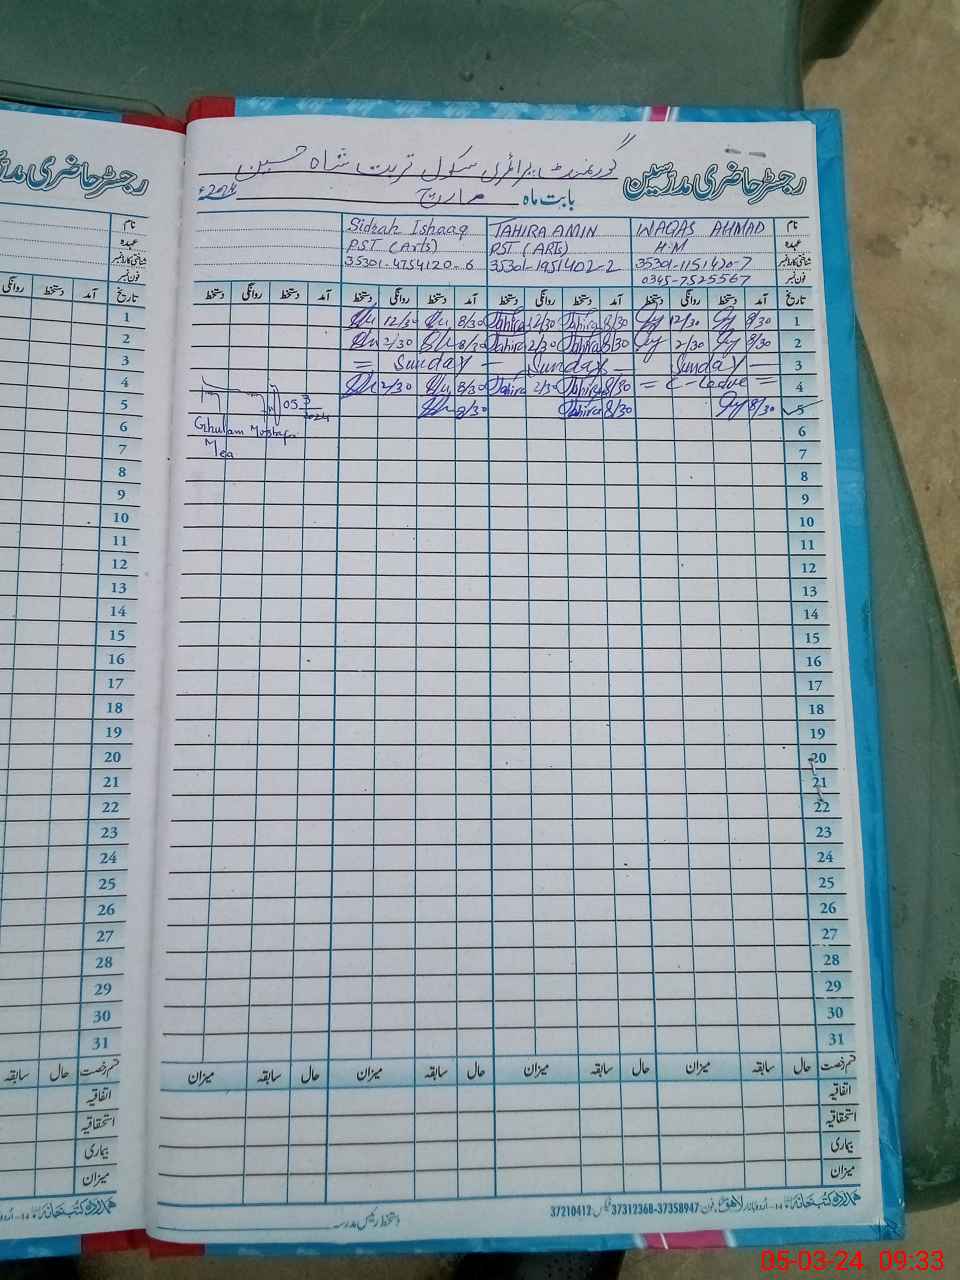 رجسٹر حاضری مدرسین گورنمنٹ پرائمری سکول تربت شاہ حسین
بابت ماہ مارچ 2024ء
نام WAQAS AHMAD TAHIRA AMIN Sidrah Ishaaq
عہدہ H.M PST (ARTS) P.S.T (Arts)
شناختی کارڈ نمبر 35301-1151420-7 35301-1951402-2 35301-4754120-6
فون نمبر 0345-7525567
تاریخ آمد دستخط روانگی دستخط آمد دستخط روانگی دستخط آمد دستخط روانگی دستخط آمد دستخط روانگی دستخط
1 8/30 12/30 8/30 Tahira 12/30 Tahira 8/30 12/30
2 8/30 2/30 8/30 Tahira 2/30 Tahira 8/30 2/30
3 Sunday Sunday Sunday
4 = C-Leave = 8/30 Tahira 2/30 Tahira 8/30 2/30
5 8/30 8/30 Tahira 8/30
05 3 2024
6
Ghulam Mustafa
7
Mea
8
9
10
11
12
13
14
15
16
17
18
19
20
21
22
23
24
25
26
27
28
29
30
31
قسم رخصت حال سابقہ میزان حال سابقہ میزان حال سابقہ میزان حال سابقہ میزان
اتفاقیہ
استحقاقیہ
بیماری
میزان
ہمدرد کتب خانہ 14-اردو بازار لاہور فون: 37358947-37312368 فیکس 37210412
دستخط رئیس مدرسہ
رجسٹر حاضری
نام
عہدہ
شناختی کارڈ نمبر
فون نمبر
تاریخ آمد دستخط روانگی
1
2
3
4
5
6
7
8
9
10
11
12
13
14
15
16
17
18
19
20
21
22
23
24
25
26
27
28
29
30
31
قسم رخصت حال سابقہ
اتفاقیہ
استحقاقیہ
بیماری
میزان
ہمدرد کتب خانہ
05-03-24 09:33